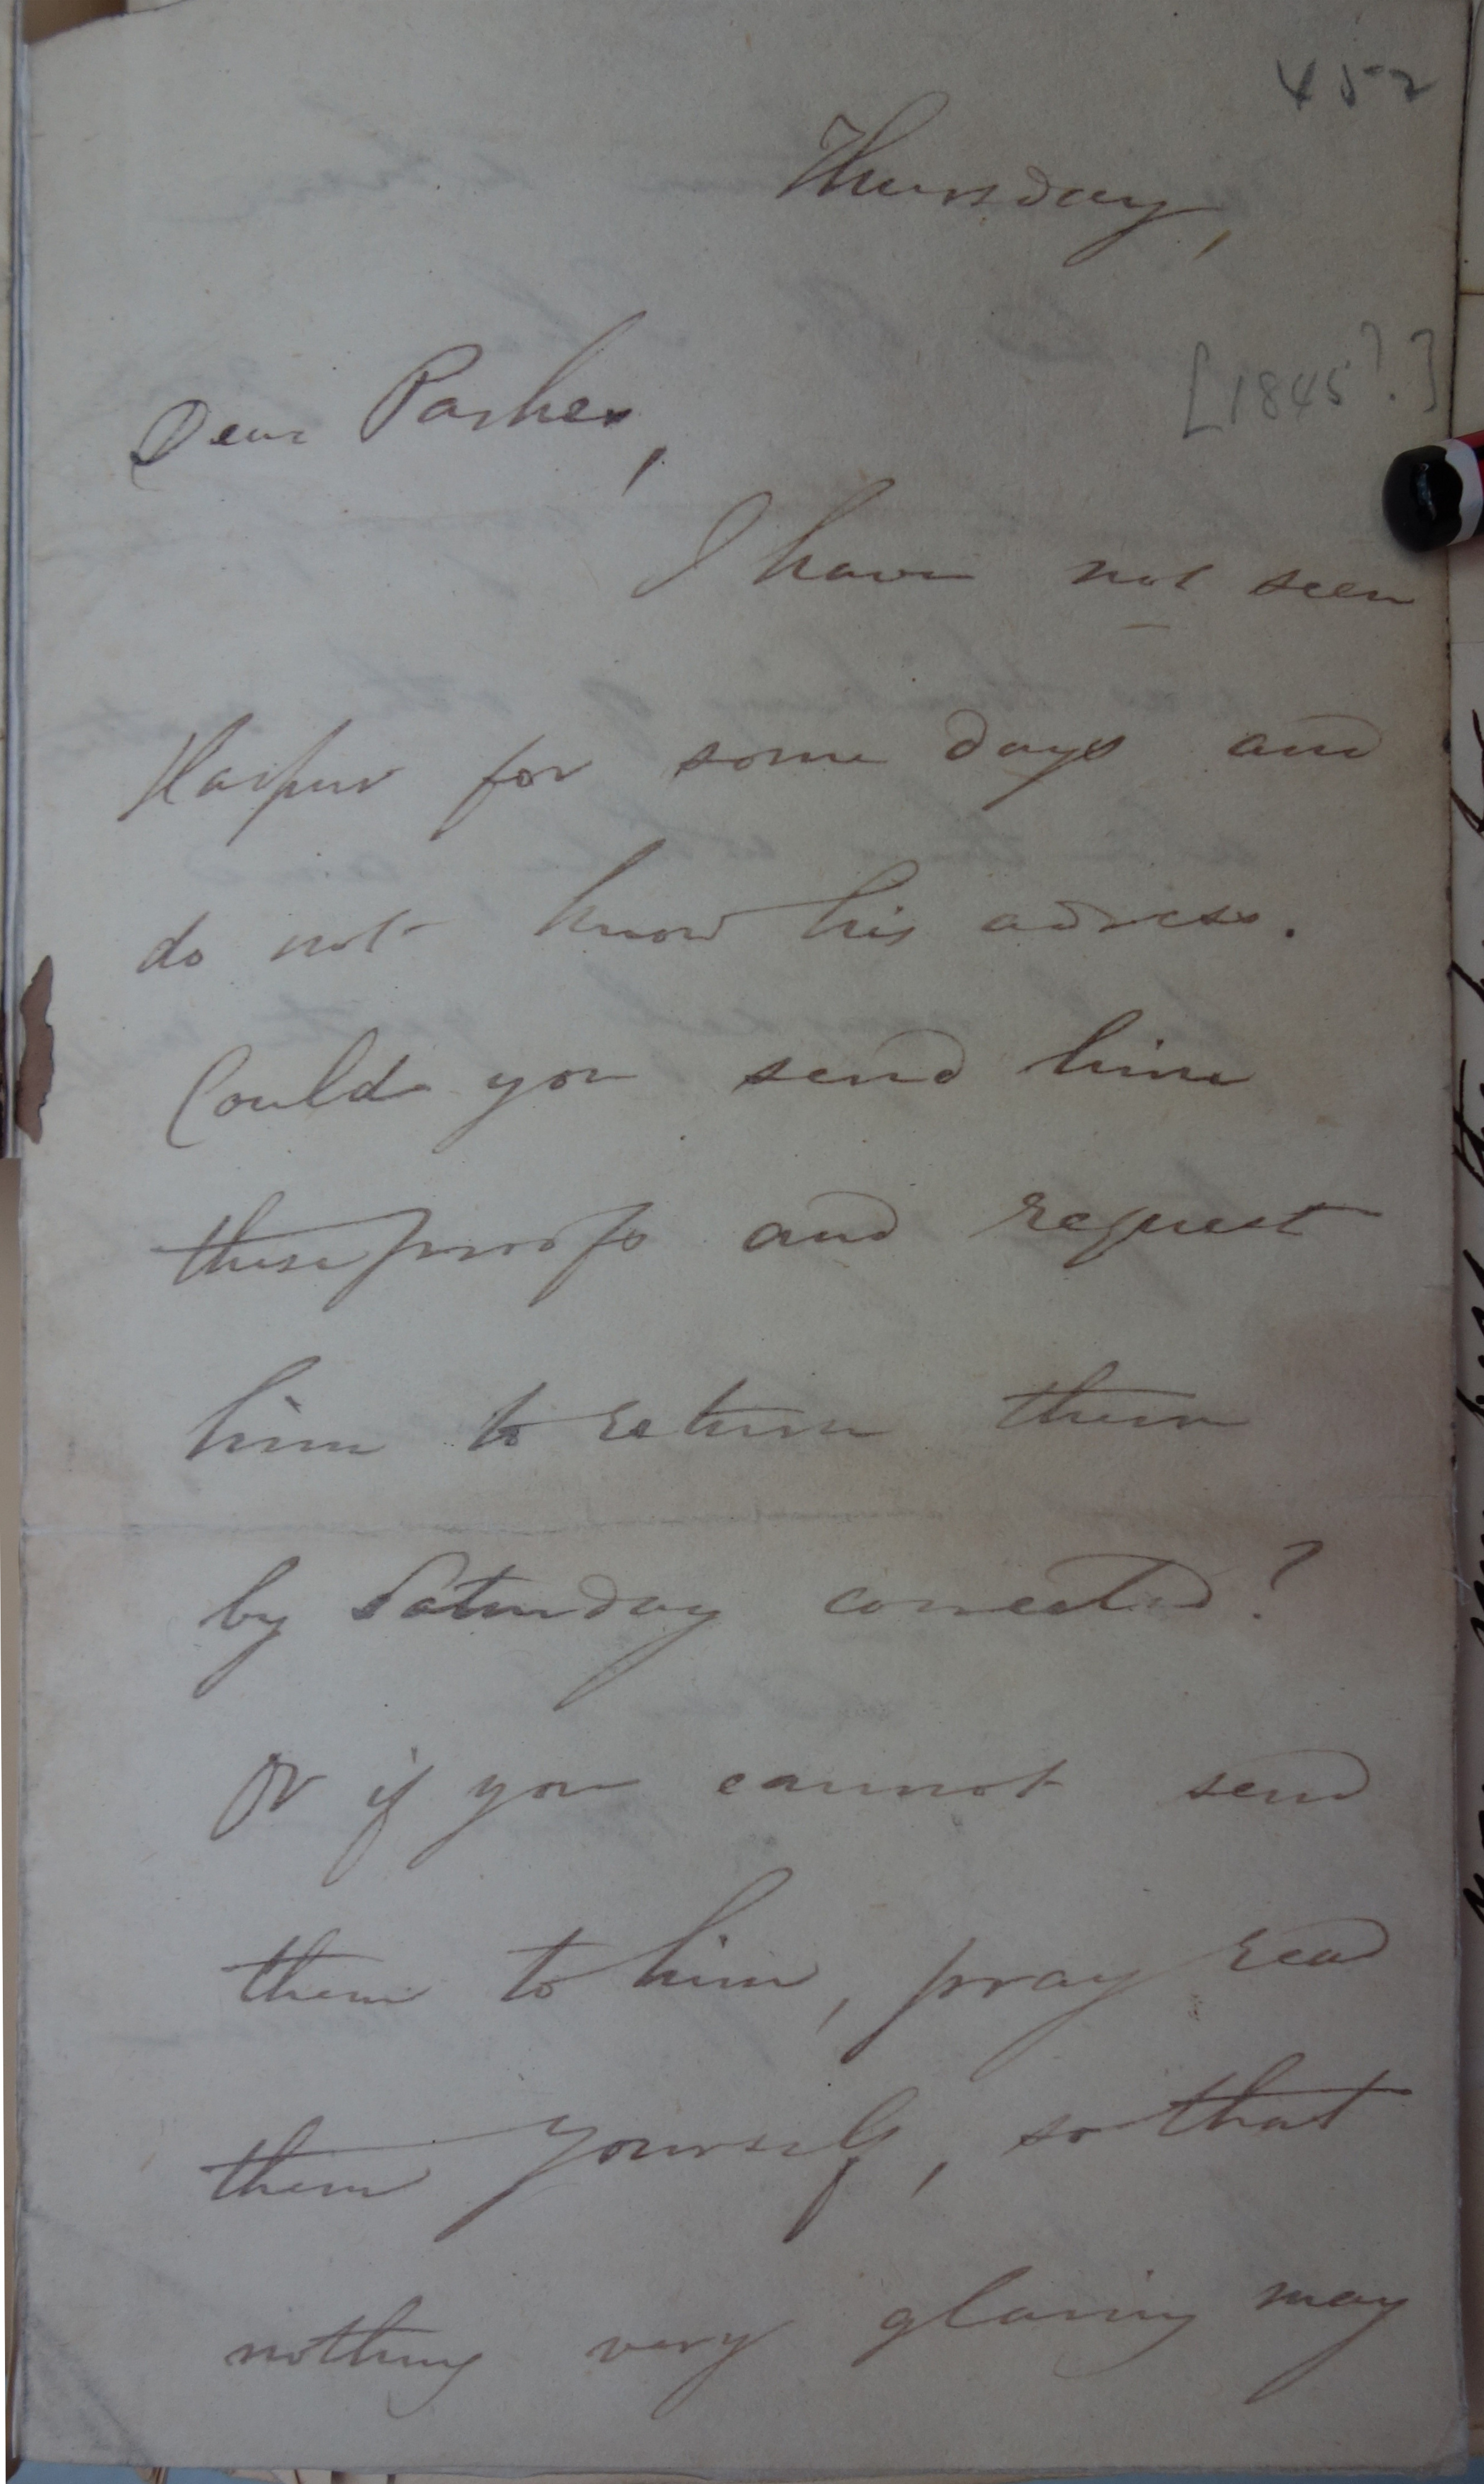 452
Thursday,
[1845?.]
Dear Parkes,
I have not seen
Harpur for some days and
do not know his address.
Could you send him
these proofs and request
him to return them
by Saturday corrected?
Or if you cannot send
them to him, pray read
them yourself, so that
nothing very glaring may